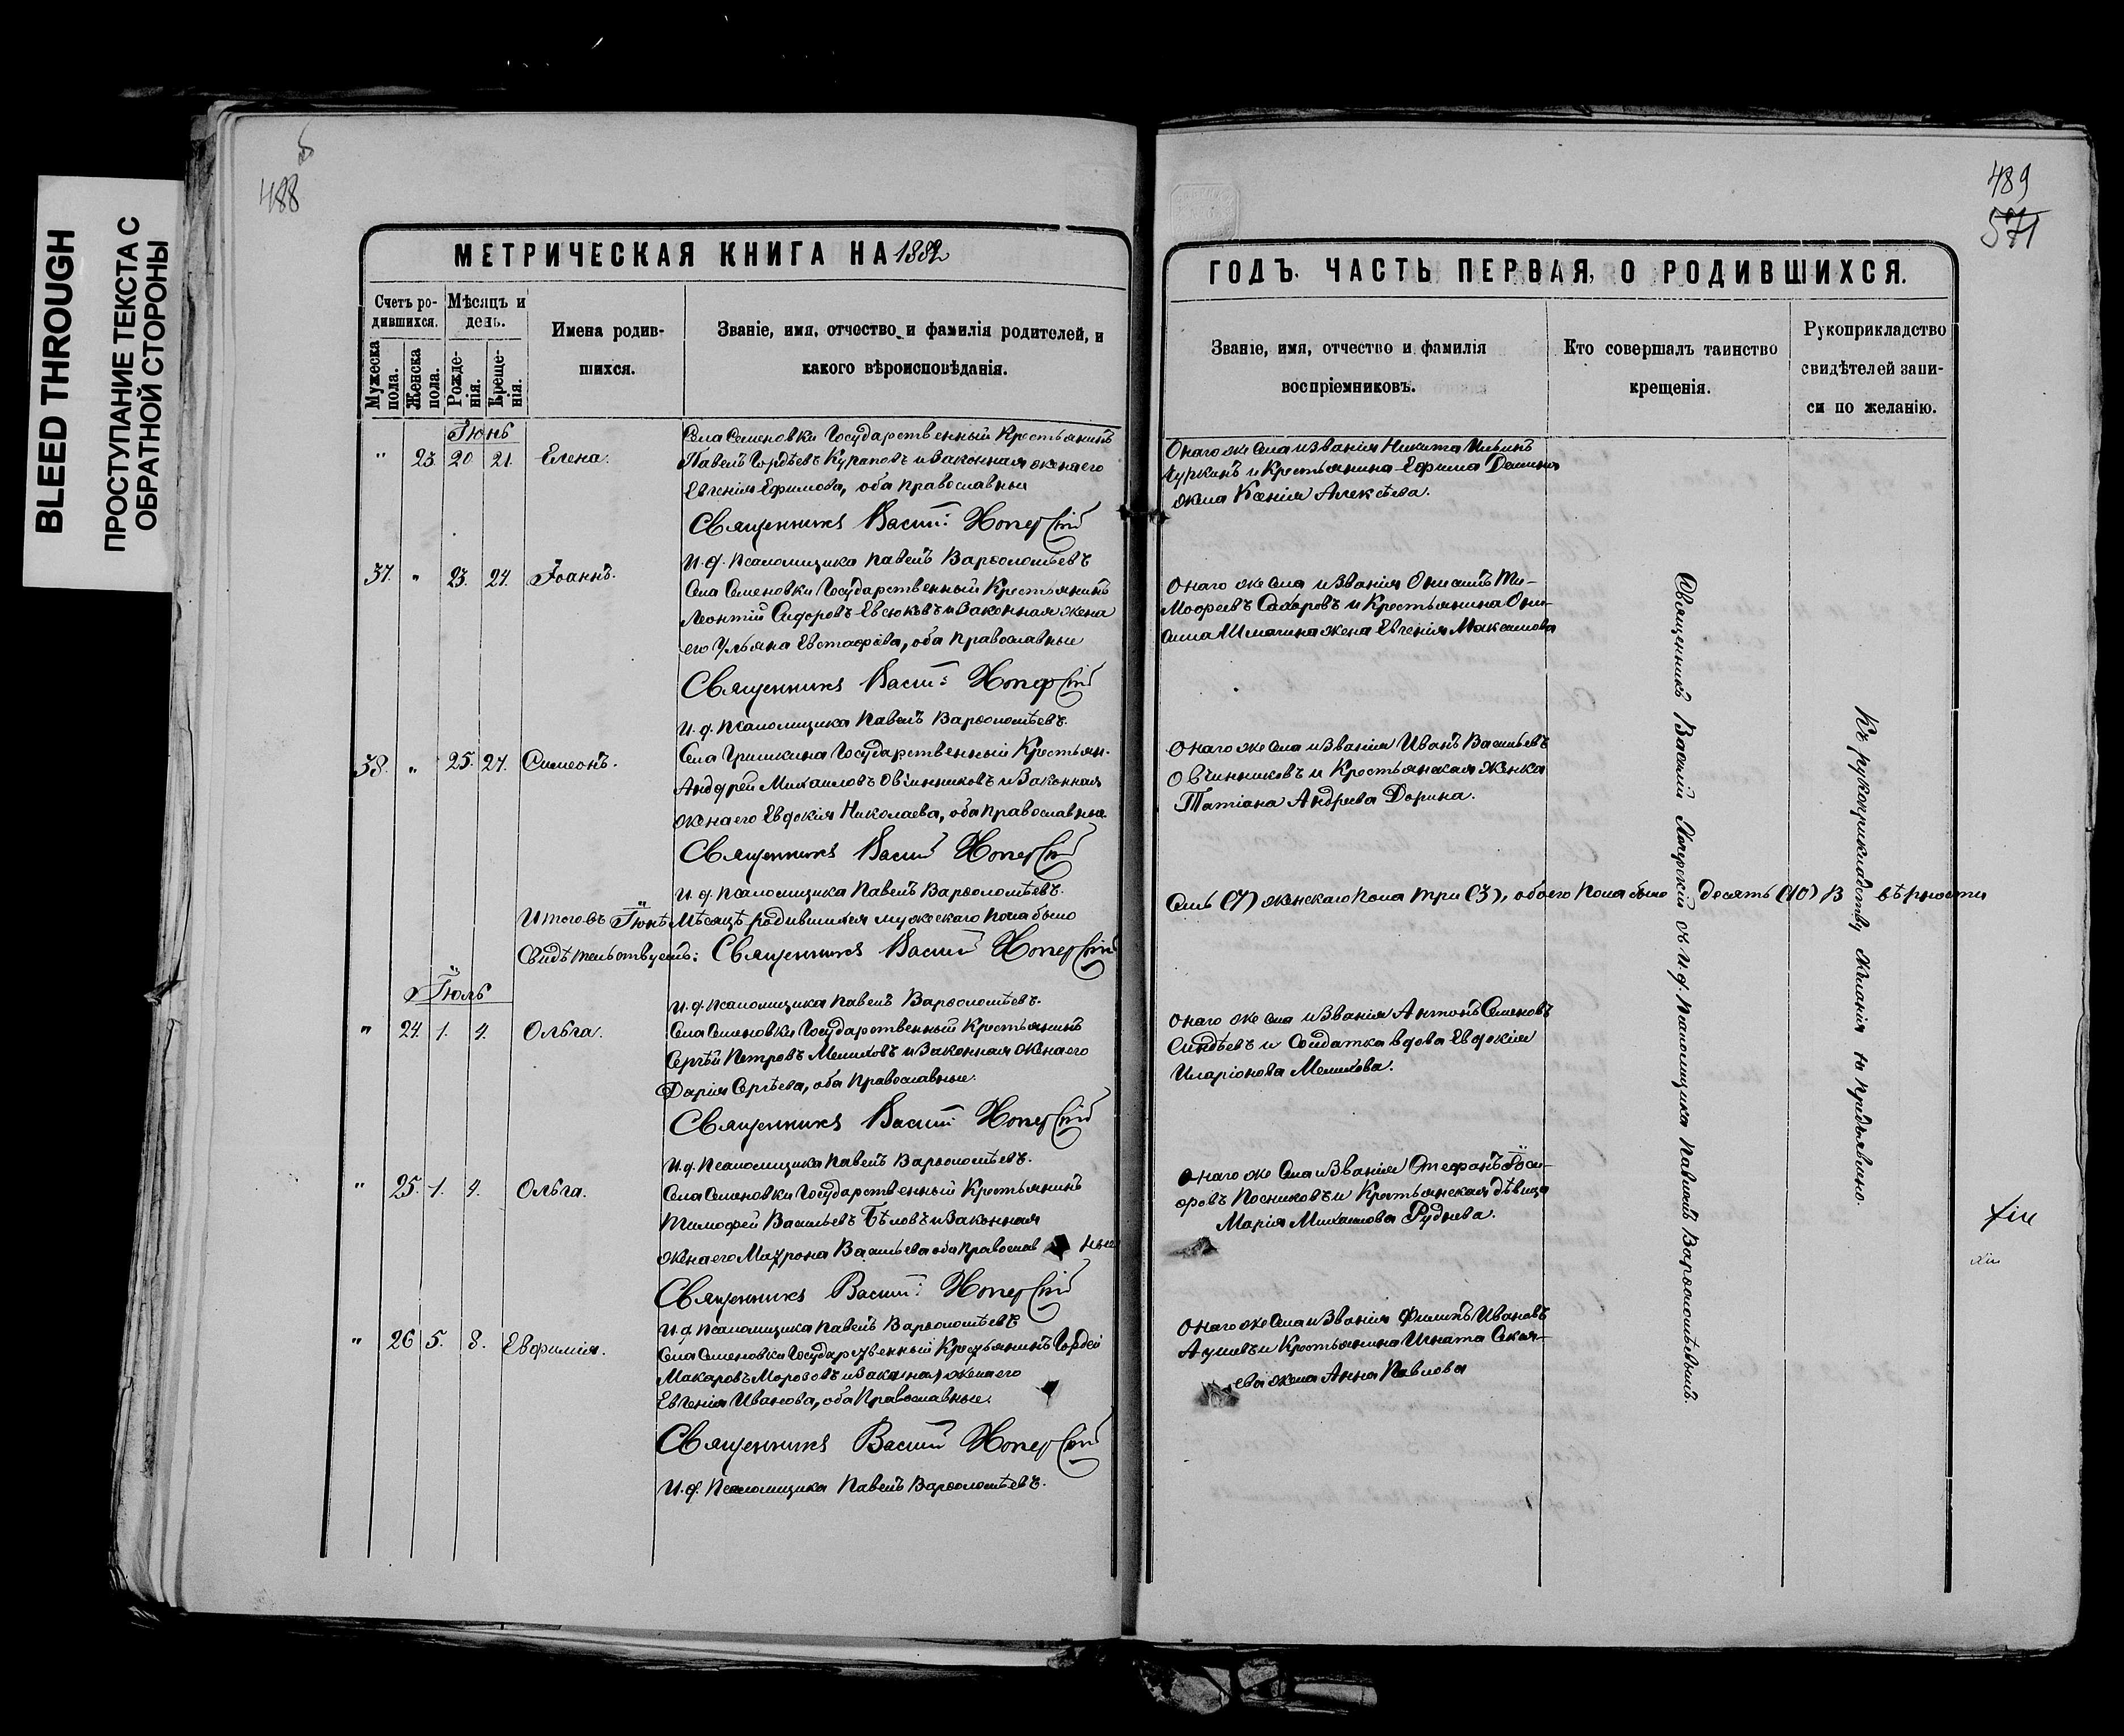 BLEED THROUGH
ПРОСТУПАНИЕ ТЕКСТА С
ОБРАТНОЙ СТОРОНЫ
488
МЕТРИЧЕСКАЯ КНИГА НА 1882
Счетъ ро-
дившихся.
Мужеска пола.
Женска пола.
Мѣсяцъ и
день.
Рожде-
нія.
Креще-
нія.
Имена родив-
шихся.
Званіе, имя, отчество и фамилія родителей, и
какого вѣроисповѣданія.
Іюнь
" 23. 20 21. Елена.
Села Семеновки Государственный Крестьянинъ
Павелъ Гордѣевъ Курановъ и законная жена его
Евгенія Ефимова, оба православные
Священникъ Васил: Хоперскій
И. д. Псаломщика Павелъ Варѳоломѣевъ
37. " 23. 24. Іоаннъ.
Села Семеновки Государственный Крестьянинъ
Леонтій Сидоровъ Евсюковъ и законная жена
его Ульяна Евстафіева, оба православные
Священникъ Васил: Хоперскій
И. д. Псаломщика Павелъ Варѳоломѣевъ.
38. " 25. 27. Симеонъ.
Села Гришкина Государственный Крестьян.
Андрей Михаиловъ Овчинниковъ и законная
жена его Евдокія Николаева, оба православные.
Священникъ Василій Хоперскій
И. д. Псаломщика Павелъ Варѳоломѣевъ.
Итого въ Іюнѣ Мѣсяцѣ родившихся мужескаго пола было
Свидѣтельствуемъ: Священникъ Василій Хоперскій
Іюль
И. д. Псаломщика Павелъ Варѳоломѣевъ.
" 24. 1. 4. Ольга.
Села Семеновки Государственный Крестьянинъ
Сергѣй Петровъ Мелиховъ и законная жена его
Дарія Сергѣева, оба Православные.
Священникъ Василій Хоперскій
И. д. Псаломщика Павелъ Варѳоломѣевъ.
" 25. 1. 4. Ольга.
Села Семеновки Государственный Крестьянинъ
Тимофей Васильевъ Бѣловъ и законная
жена его Матрона Васильева оба православ ные
Священникъ Васил: Хоперскій
И. д. Псаломщика Павелъ Варѳоломѣевъ
" 26 5. 8. Евфимія.
Села Семеновки Государственный Крестьянинъ Гордей
Макаровъ Морозовъ и законная жена его
Евгенія Иванова, оба Православные.
Священникъ Василій Хоперскій
И. д. Псаломщика Павелъ Варѳоломѣевъ.
489
571
ГОДЪ. ЧАСТЬ ПЕРВАЯ, О РОДИВШИХСЯ.
Званіе, имя, отчество и фамилія
воспріемниковъ.
Кто совершалъ таинство
крещенія.
Рукоприкладство
свидѣтелей запи-
си по желанію.
Онаго же села и званія Никита Ильинъ
Чуркинъ и Крестьянина Ефима Демина
жена Ксенія Алексѣева.
Онаго же села и званія Онисимъ Ти-
мофеевъ Сахаровъ и Крестьянина Они-
сима жена Евгенія Максимова
Онаго же села и званія Иванъ Васильевъ
Овчинниковъ и Крестьянская Женка
Татіана Андреева Дорина.
Семь (7) женскаго пола три (3), обоего пола было десять (10) въ вѣрности
Онаго же села и званія Антонъ Семеновъ
и Солдатка вдова Евдокія
Иларіонова Мелихова.
Онаго же села и званія Стефанъ
Посниковъ и Крестьянская дѣвица
Марія Михаилова Руднева.
Онаго же села и званія Филипъ Ивановъ
и Крестьянина Игната
жена Анна Павлова
Священникъ Василій Хоперскій съ И. д. Псаломщика Павломъ Варѳоломѣевымъ.
Къ рукоприкладству желанія не предъявлено.